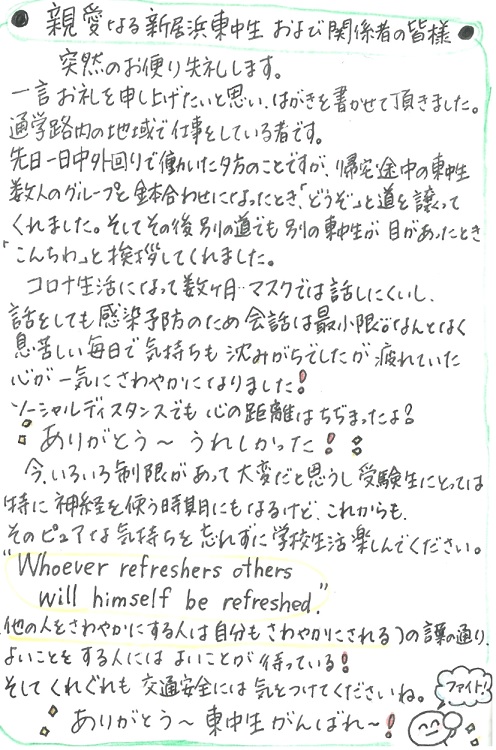 親愛なる新居浜東中生 および関係者の皆様
突然のお便り失礼します。
一言お礼を申し上げたいと思い、はがきを書かせて頂きました。
通学路内の地域で仕事をしている者です。
先日一日中外回りで働いた夕方のことですが、帰宅途中の東中生
数人のグループと鉢合わせになったとき、「どうぞ」と道を譲って
くれました。そしてその後 別の道でも 別の東中生が 目があったとき
「こんちわ」と挨拶してくれました。
コロナ生活になって数ヶ月… マスクでは話しにくいし、
話をしても感染予防のため 会話は最小限。なんとなく
息苦しい毎日で 気持ちも 沈みがちでしたが 疲れていた
心が 一気にさわやかになりました!
ソーシャルディスタンスでも 心の距離はちぢまったよ♪
ありがとう〜 うれしかった!
今、いろいろ制限があって 大変だと思うし 受験生にとっては
特に 神経を使う時期にもなるけど、これからも、
そのピュアな気持ちを 忘れずに 学校生活 楽しんでください。
"Whoever refreshers others
will himself be refreshed."
(他の人をさわやかにする人は 自分も さわやかにされる)の言葉の通り、
よいことを する人には よいことが 待っている!
そして くれぐれも 交通安全には 気をつけてくださいね。
ファイト!
ありがとう〜 東中生 がんばれ〜!